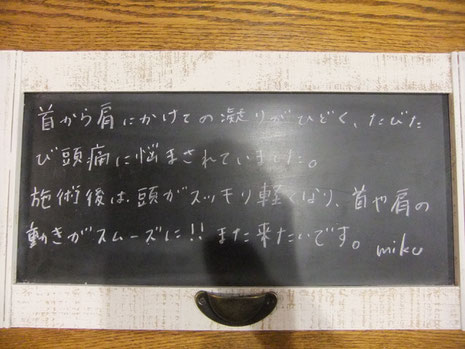 首から肩にかけての凝りがひどく、たびた
び頭痛に悩まされていました。
施術後は、頭がスッキリ軽くなり、首や肩の
動きがスムーズに!! また来たいです。 miku